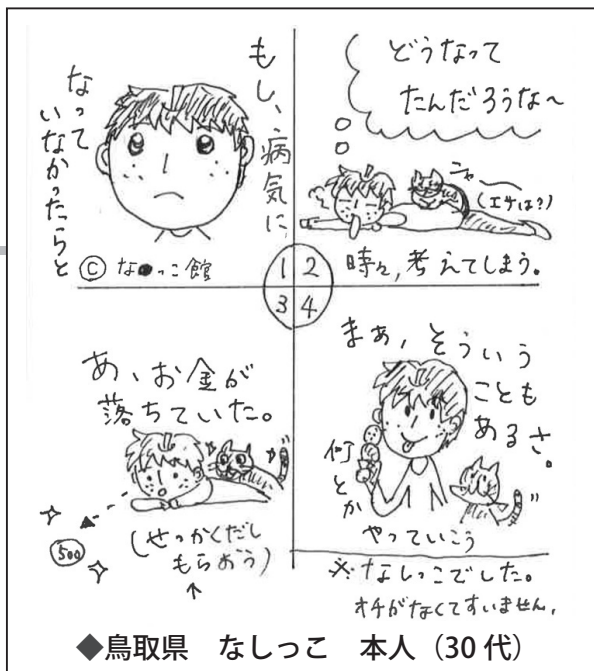 もし、病気に
なって
いなかったらと
© な●っこ館
1
どうなって
たんだろうな〜
ニャー
(エサは?)
時々,考えてしまう。
2
あ、お金が
落ちていた。
500
(せっかくだし
もらおう)
↑
3
まぁ,そういう
ことも
あるさ。
何とか
やっていこう
4
※なしっこでした。
オチがなくてすいません。
◆鳥取県 なしっこ 本人(30代)